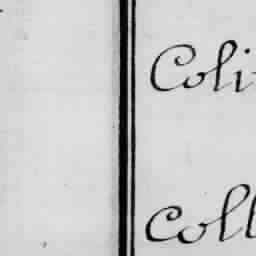 Coli
Coll